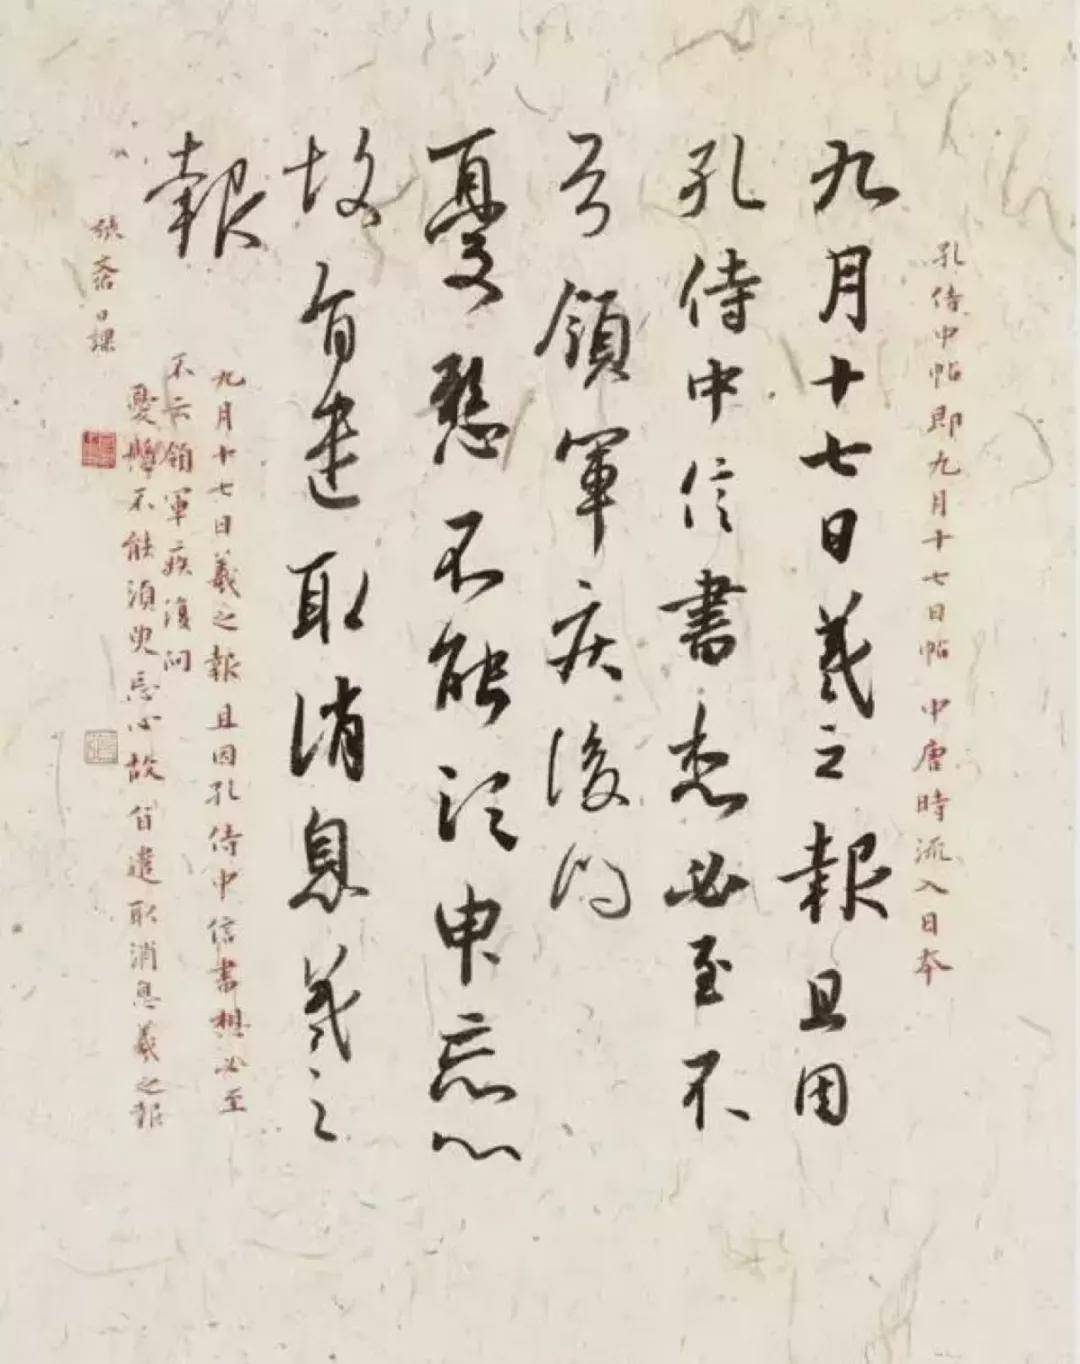 孔侍中帖即九月十七日帖 中唐時流入日本
九月十七日羲之報且因
孔侍中信書想必至不
知領軍疾後問
憂懸不能須臾忘心
故旨遣取消息羲之
報
九月十七日羲之報且因孔侍中信書想必至
不示領軍疾復問
憂懸不能須臾忘心故旨遣取消息羲之報
日課